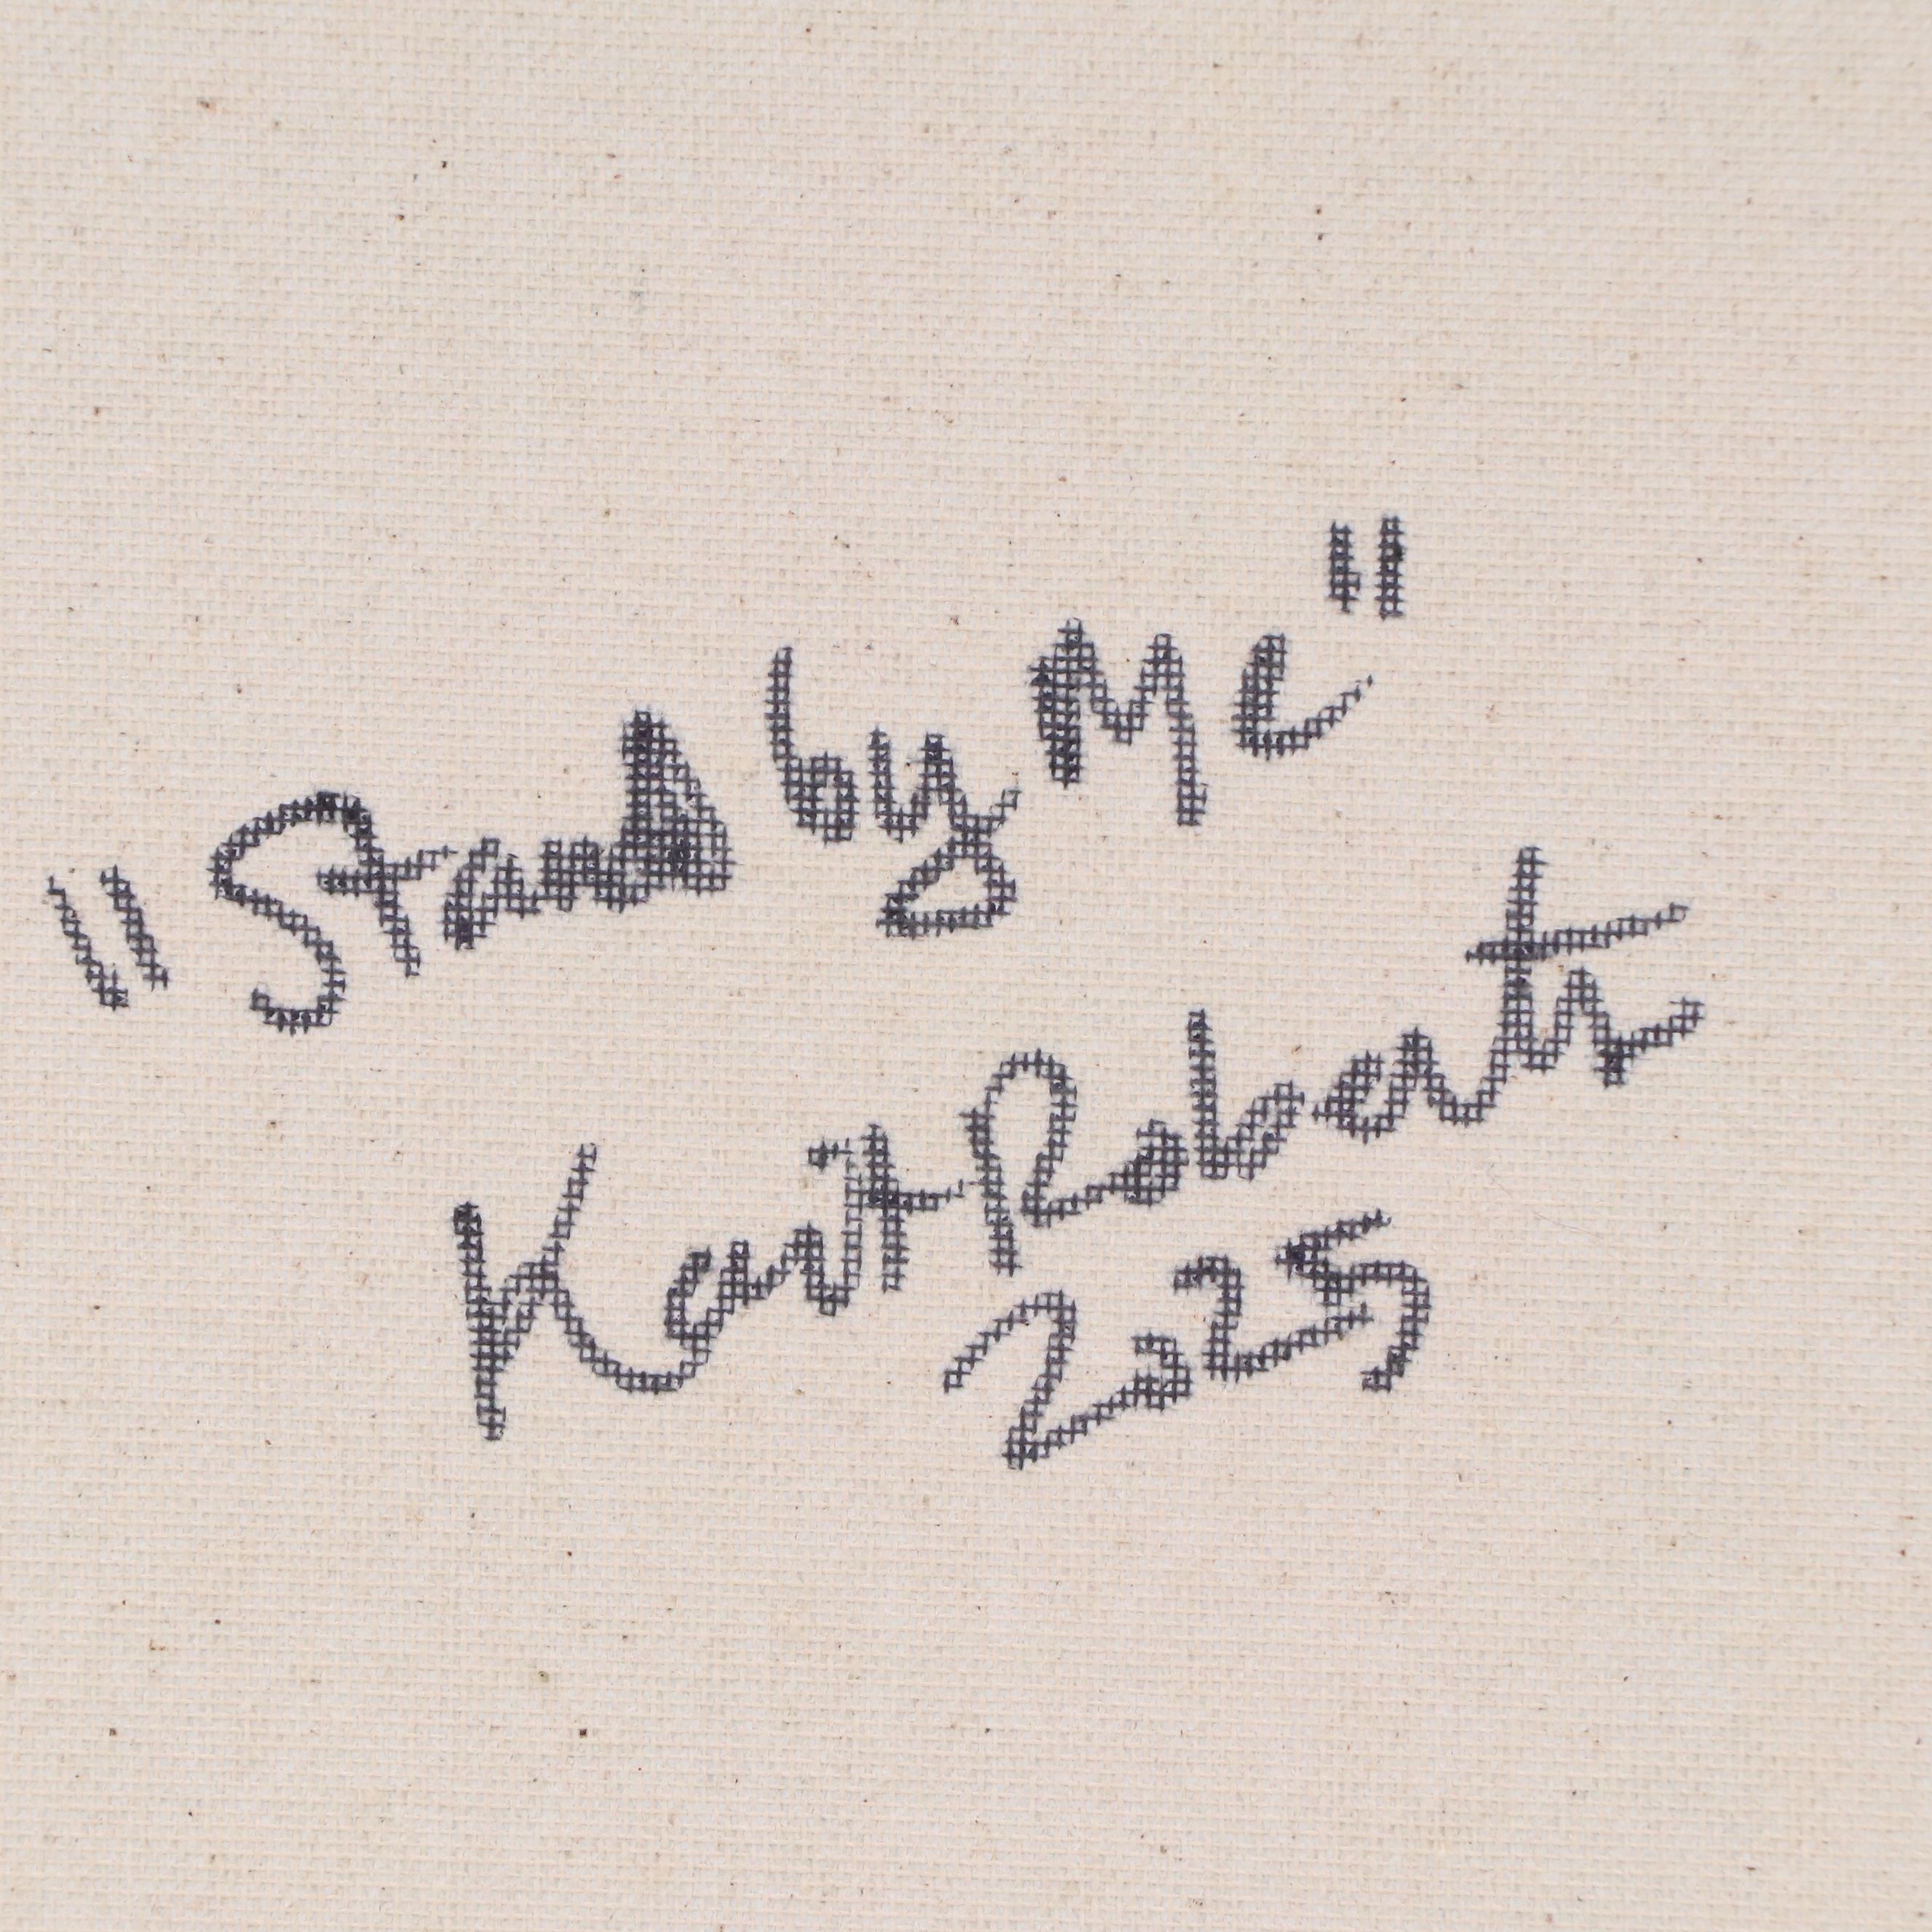 "Stand by Me"
Kait Roberts
2025